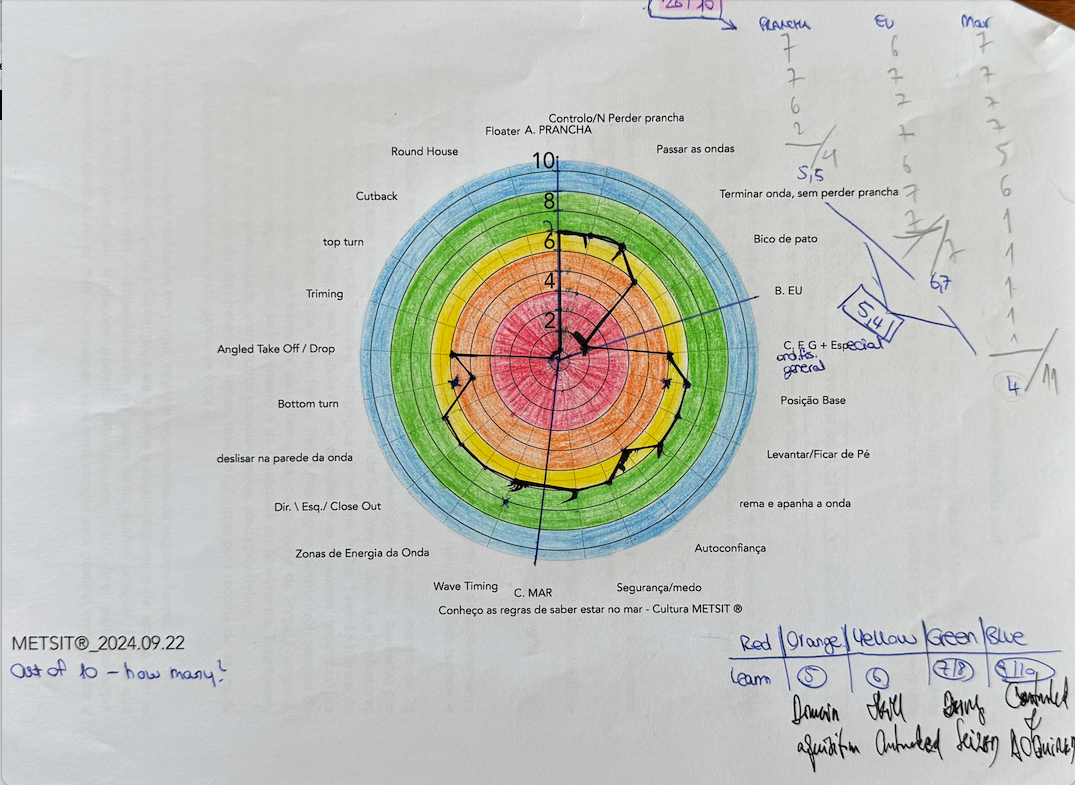 26/10
PRANCHA EU Mar
7 6 7
7 7 7
6 7 7
2 7 7
/4 6 5
5,5 7 6
7 1
/7 1
6,7 1
1
1
4 /11
5,41
Controlo/N Perder prancha
Floater A. PRANCHA
Round House
Passar as ondas
Cutback
Terminar onda, sem perder prancha
top turn
Bico de pato
Triming
B. EU
Angled Take Off / Drop
C, F, G + Especial
general
Bottom turn
Posição Base
deslisar na parede da onda
Levantar/Ficar de Pé
Dir. \ Esq./ Close Out
rema e apanha a onda
Zonas de Energia da Onda
Autoconfiança
Wave Timing
C. MAR
Segurança/medo
Conheço as regras de saber estar no mar - Cultura METSIT ®
10
8
7
6
4
2
METSIT®_2024.09.22
Out of 10 - how many?
Red | Orange | Yellow | Green | Blue
Learn 5 6 7/8 9/10
Domain Skill